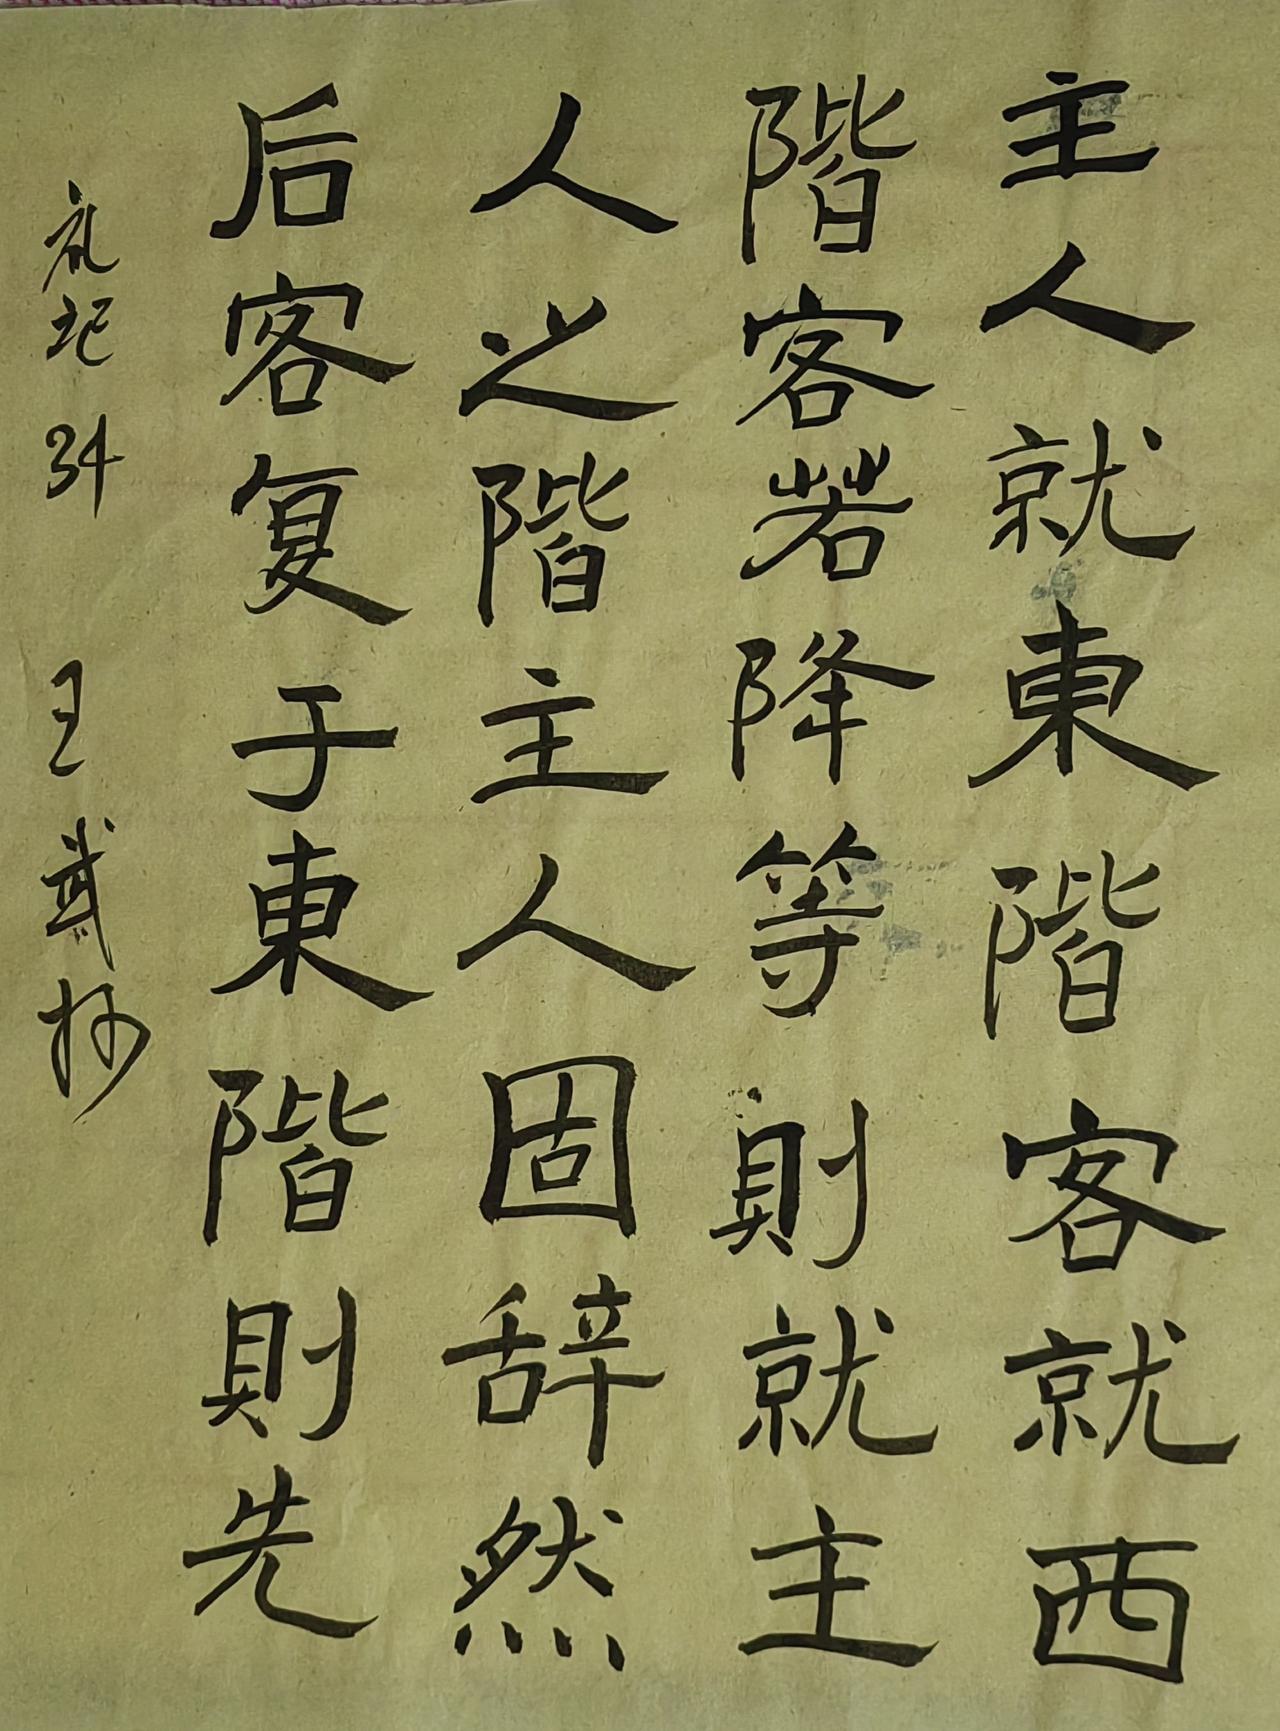 主人就東階客就西
階客若降等則就主
人之階主人固辞然
后客复于東階則先
礼记34 王武抄